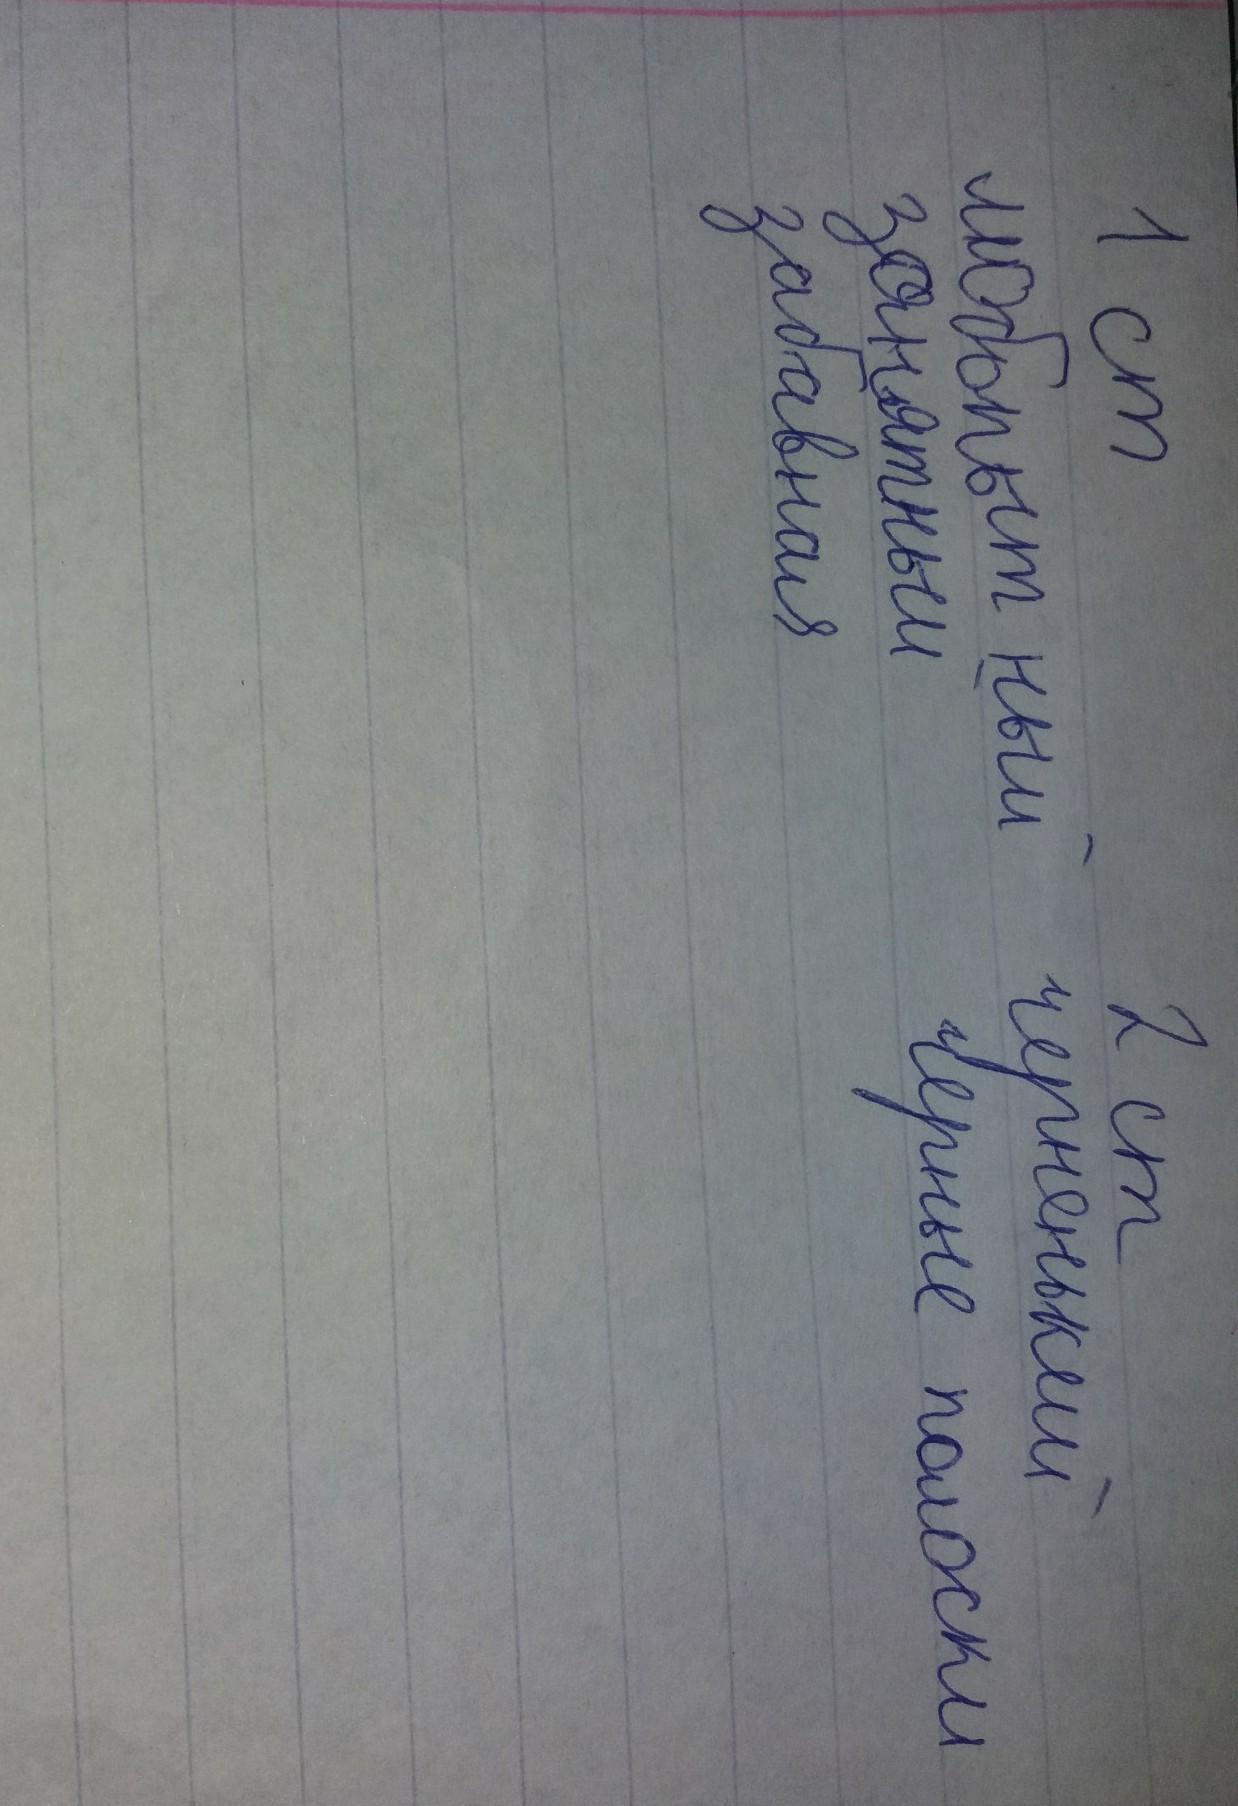 1 ст 2 ст
любопытный черненький
занятный черные полоски
забавная